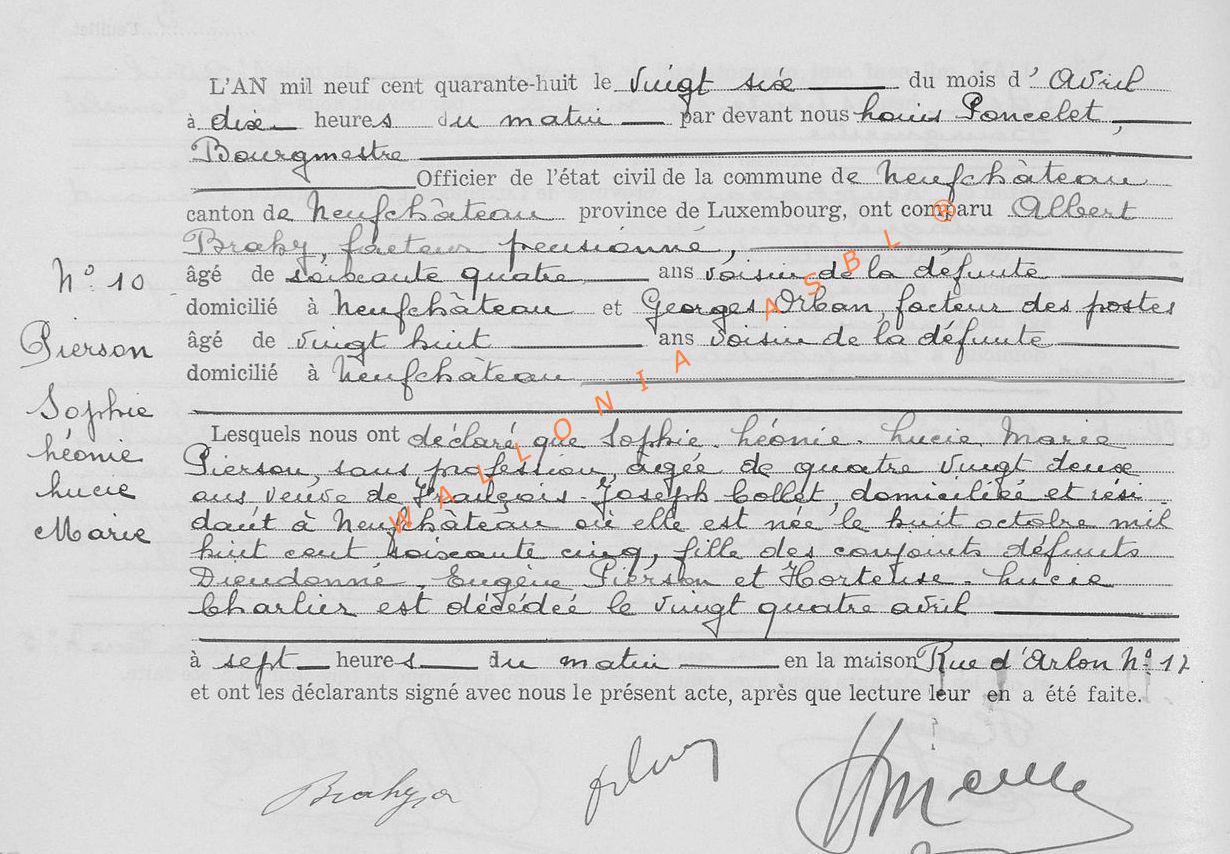 L'AN mil neuf cent quarante-huit le vingt six du mois d' Avril
à dix heures du matin par devant nous Louis Poncelet,
Bourgmestre
Officier de l'état civil de la commune de Neufchâteau
canton de Neufchâteau province de Luxembourg, ont comparu Albert
Brahy, facteur pensionné,
N° 10
âgé de soixante quatre ans voisin de la défunte
domicilié à Neufchâteau et Georges Orban, facteur des postes
âgé de vingt huit ans voisin de la défunte
domicilié à Neufchâteau
Pierson
Sophie
Léonie
Lucie
Marie
Lesquels nous ont déclaré que Sophie-Léonie-Lucie Marie
Pierson, sans profession, âgée de quatre vingt deux
ans, veuve de François-Joseph Collet, domiciliée et rési
dant à Neufchâteau où elle est née le huit octobre mil
huit cent soixante cinq, fille des conjoints défunts
Dieudonné-Eugène Pierson et Hortense-Lucie
Charlier est décédée le vingt quatre avril
à sept heures du matin en la maison Rue d'Arlon N° 12
et ont les déclarants signé avec nous le présent acte, après que lecture leur en a été faite.
WALLONIA ASBL ®